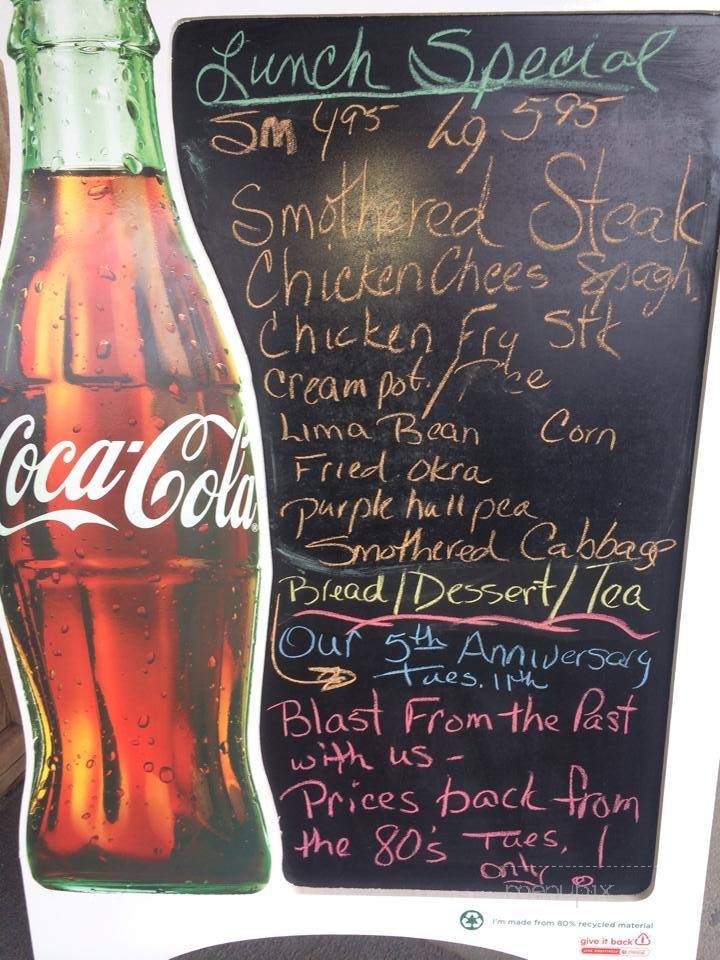 Lunch Special
Sm 495 Lg 5.95
Smothered Steak
Chicken Chees Spagh.
Chicken Fry Stk
Cream pot. / rice
Lima Bean Corn
Fried okra
purple hull pea
Smothered Cabbage
Bread / Dessert / Tea
Our 5th Anniversary
Tues. 11th
Blast From the Past
with us -
Prices back from
the 80's Tues.
only!
Coca-Cola
menupix
I'm made from 80% recycled material
give it back